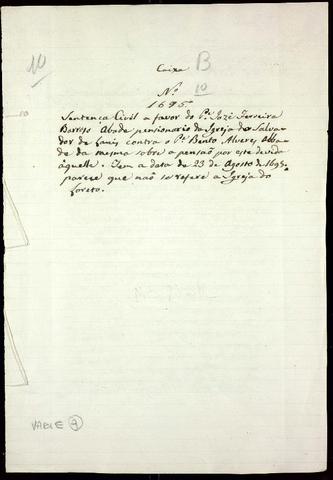 10
Caixa B
Nº 10
1695
Sentença Civil a favor do Pe. Jozé Ferreira
Barros, Abade pensionario da Igreja do Salva-
dor de contra o Pe. Bento Alvares, Abba-
de da mesma sobre a pensão por este devida
àquelle. Tem a data de 23 de Agosto de 1695.
parece que não se refere a Igreja do
Loreto.
VARIE 9